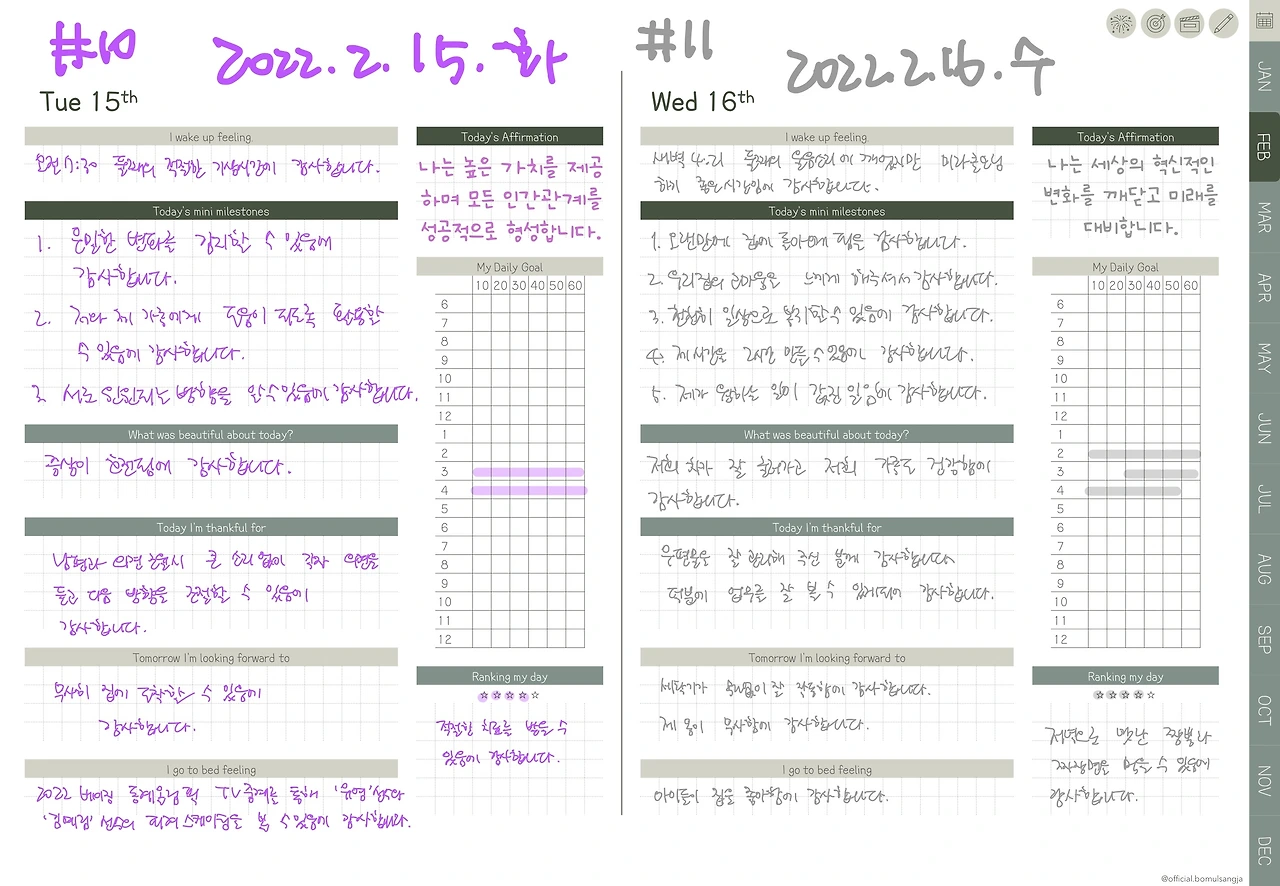 #10
2022.2.15.화
Tue 15th
I wake up feeling
오전 7:30 둘째의 적절한 기상시간에 감사합니다.
Today's mini milestones
1. 은밀한 변화를 감지할 수 있음에
감사합니다.
2. 저와 제 가족에게 도움이 되도록 활용할
수 있음에 감사합니다.
3. 서로 윈윈되는 방향을 알 수 있음에 감사합니다.
What was beautiful about today?
증상이 호전됨에 감사합니다.
Today I'm thankful for
남편과 의견 충돌시 큰 소리 없이 각자 의견을
듣고 다음 방향을 조절할 수 있음에
감사합니다.
Tomorrow I'm looking forward to
무사히 집에 도착할 수 있음에
감사합니다.
I go to bed feeling
2022 베이징 동계올림픽 TV중계를 통해 '유영'선수와
'김예림' 선수의 피겨스케이팅을 볼 수 있음에 감사합니다.
Today's Affirmation
나는 높은 가치를 제공
하며 모든 인간관계를
성공적으로 형성합니다.
My Daily Goal
10 20 30 40 50 60
6
7
8
9
10
11
12
1
2
3
4
5
6
7
8
9
10
11
12
Ranking my day
적절한 치료를 받을 수
있음에 감사합니다.
#11
2022.2.16.수
Wed 16th
I wake up feeling
새벽 4:21 둘째의 울음소리에 깨었지만 미라클모닝
하기 좋은시간임에 감사합니다.
Today's mini milestones
1. 오랜만에 집에 돌아에 됨을 감사합니다.
2. 우리집의 고마움을 느끼게 해주셔서 감사합니다.
3. 천천히 일상으로 복귀할 수 있음에 감사합니다.
4. 제 시간을 2시간 만들 수 있음에 감사합니다.
5. 제가 원하는 일이 값진 일임에 감사합니다.
What was beautiful about today?
저희 차가 잘 굴러가고 저희 가족도 건강함에
감사합니다.
Today I'm thankful for
우편물을 잘 관리해 주신 분께 감사합니다
덕분에 업무를 잘 볼 수 있게되어 감사합니다.
Tomorrow I'm looking forward to
세탁기가 잘 작동함에 감사합니다.
제 몸이 무사함에 감사합니다.
I go to bed feeling
아이들이 집을 좋아함에 감사합니다.
Today's Affirmation
나는 세상의 혁신적인
변화를 깨닫고 미래를
대비합니다.
My Daily Goal
10 20 30 40 50 60
6
7
8
9
10
11
12
1
2
3
4
5
6
7
8
9
10
11
12
Ranking my day
저녁으로 맛난 짬뽕과
짜장면을 먹을 수 있음에
감사합니다.
JAN
FEB
MAR
APR
MAY
JUN
JUL
AUG
SEP
OCT
NOV
DEC
@official.bomulsangja